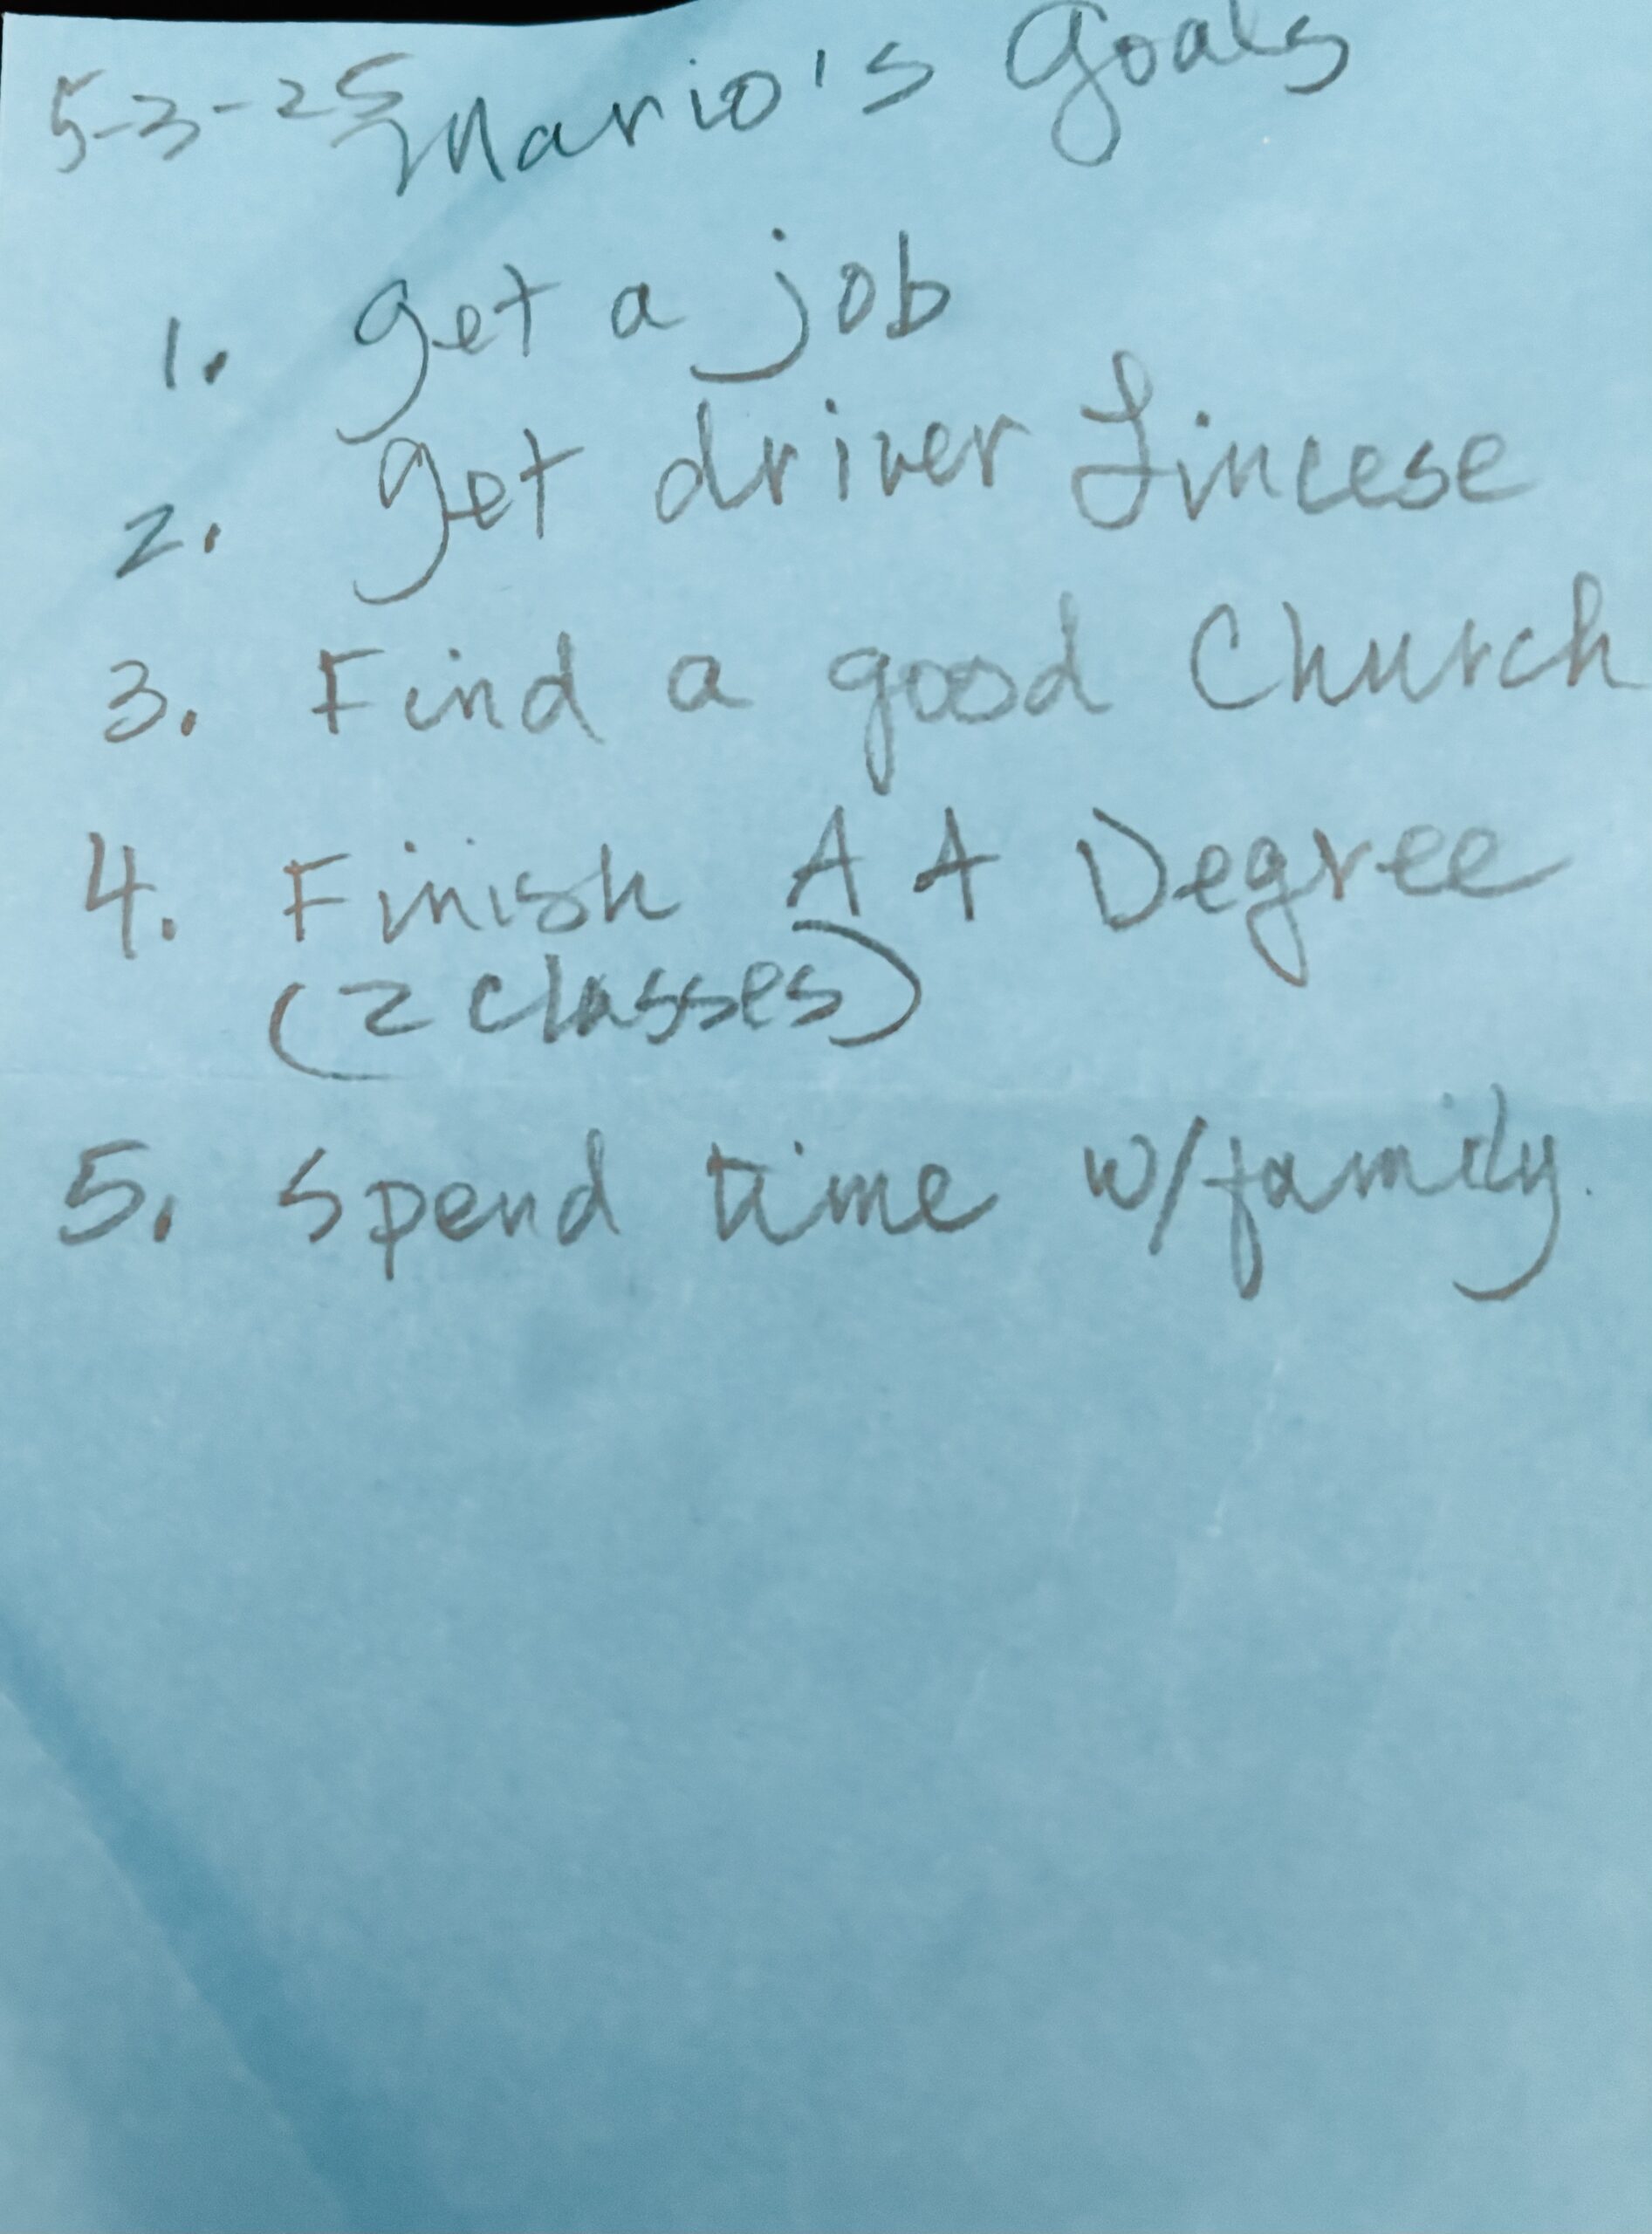 5-3-25 Mario's Goals
1. get a job
2. get driver Lincese
3. Find a good Church
4. Finish A A Degree
(2 classes)
5. Spend time w/family.